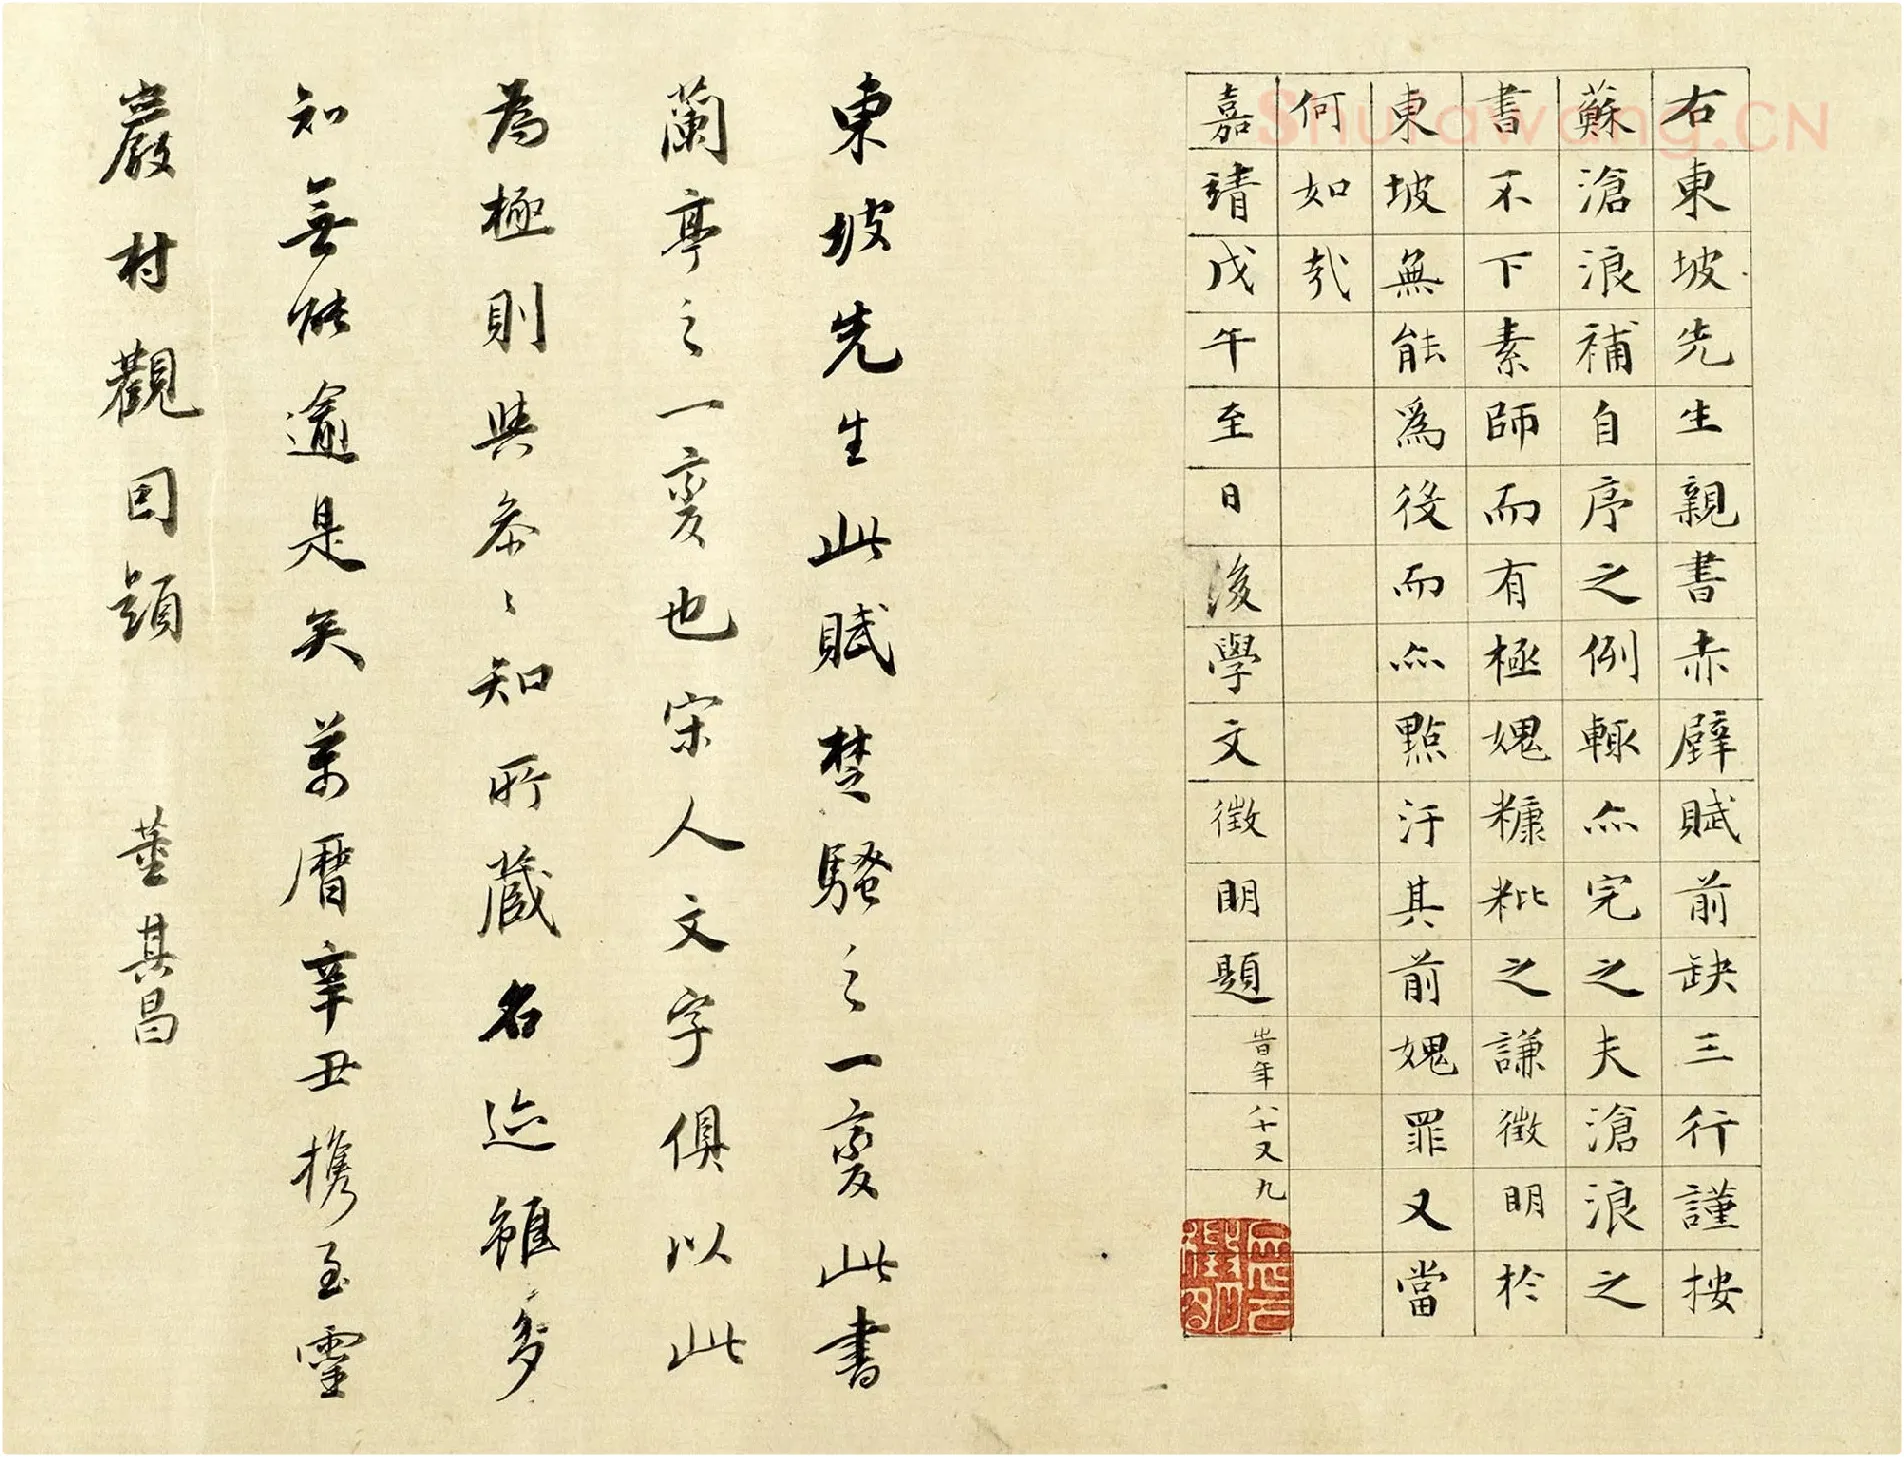 右東坡先生親書赤壁賦前缺三行謹按
蘇滄浪補自序之例輒亦完之夫滄浪之
書不下素師而有極媿糠粃之謙徵明於
東坡無能為役而亦點汙其前媿罪又當
何如哉
嘉靖戊午至日後學文徵明題 峕年八十又九
東坡先生此賦楚騷之一變此書
蘭亭之一變也宋人文字俱以此
為極則與參參知所藏名迹雖多
知無能逾是矣萬曆辛丑攜至靈
巖村觀因題 董其昌
Shufawang.CN